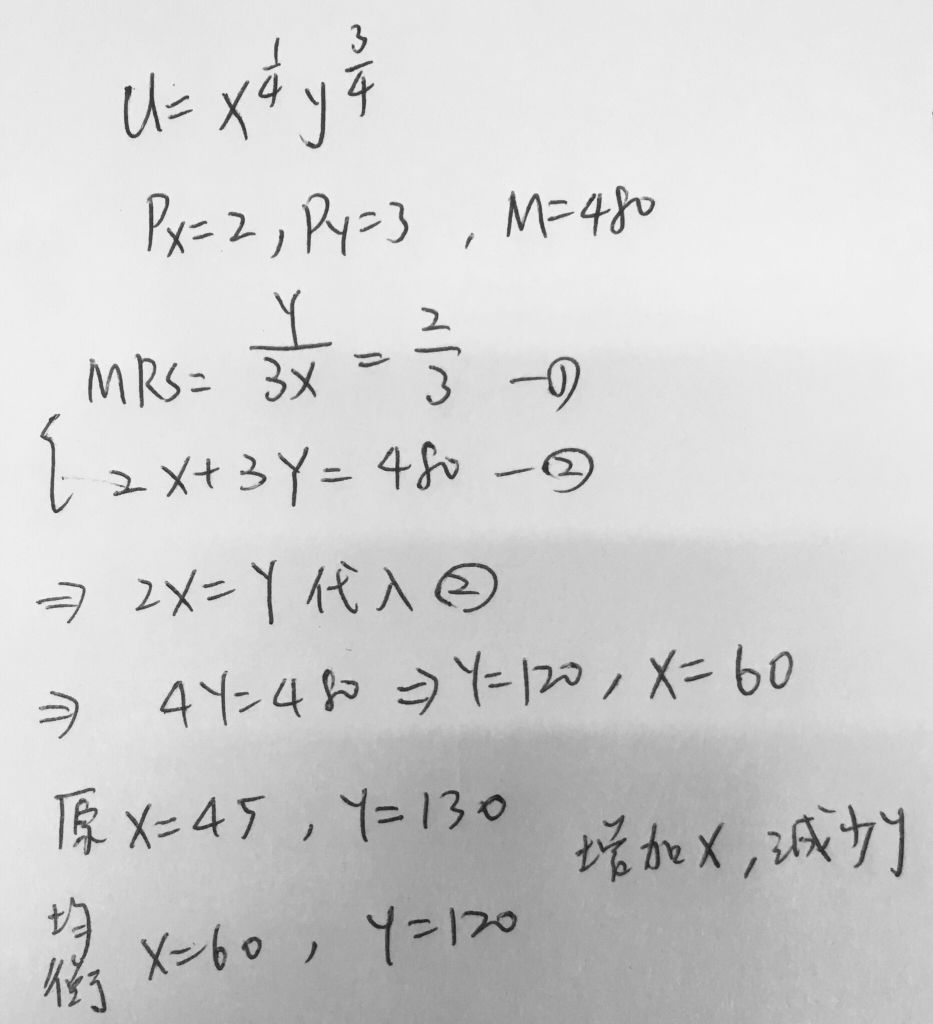 U= x^{1/4} y^{3/4}
Px=2, Py=3 , M=480
MRS= Y/3X = 2/3 —①
{ 2X+3Y= 480 —②
⇒ 2X=Y 代入②
⇒ 4Y=480 ⇒ Y=120, X=60
原 X=45 , Y=130
增加X,減少y
均衡 X=60 , Y=120